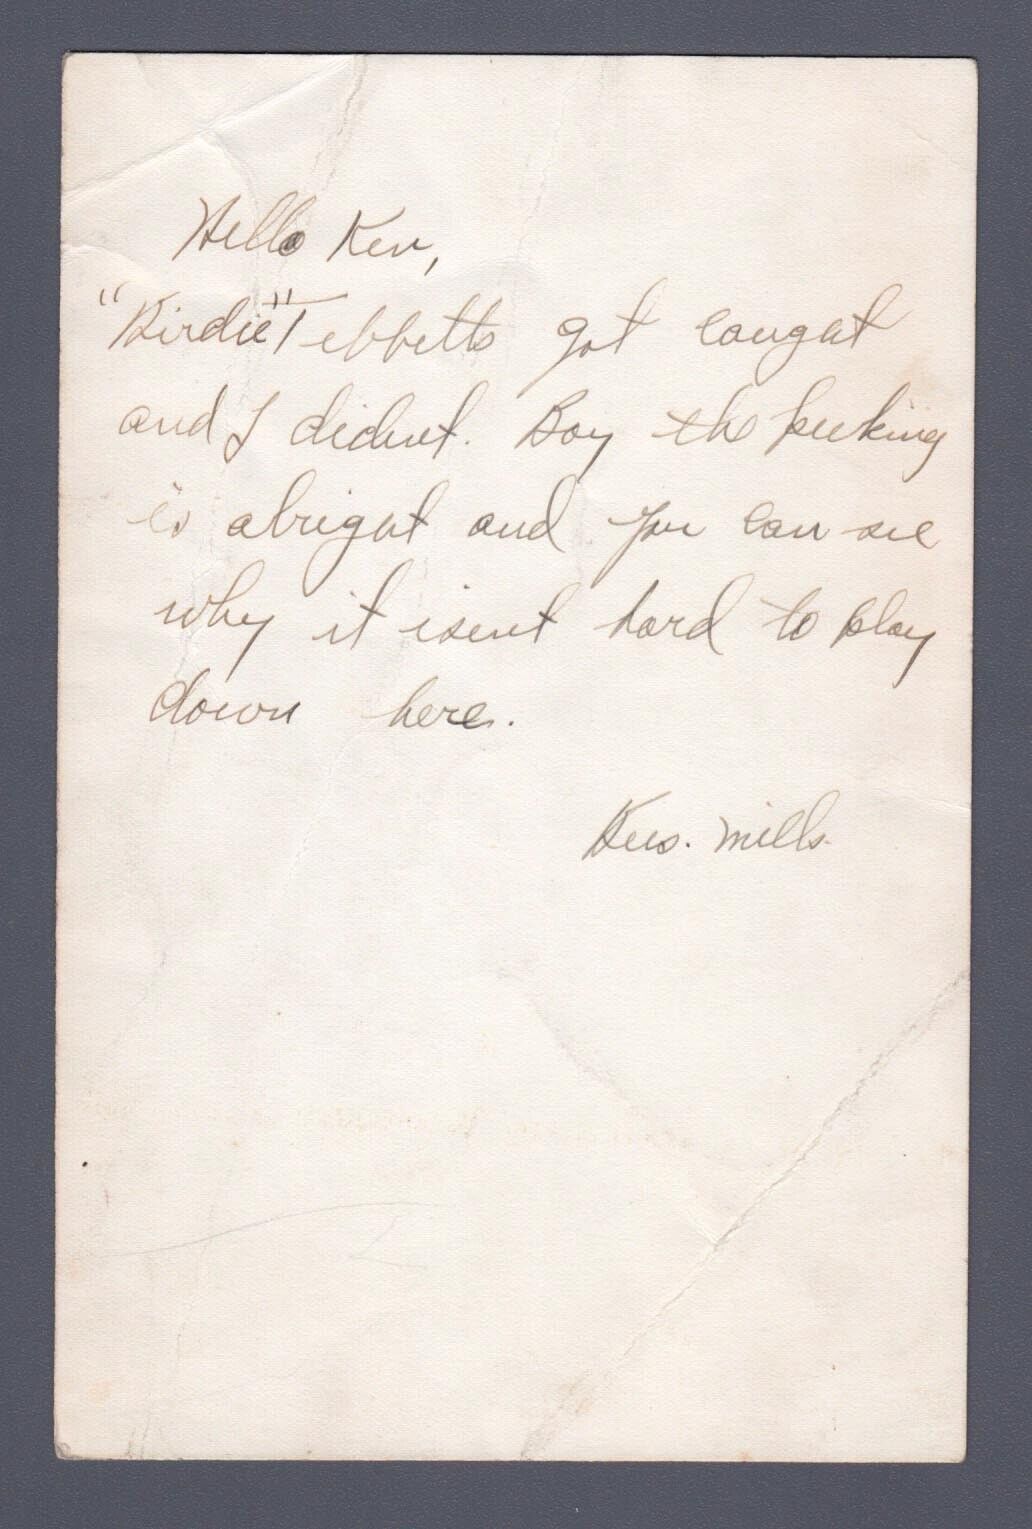 Hello Ken,
"Birdie" Tebbetts got caught
and I didnt. Boy the peeking
is alright and you can see
why it isent hard to play
down here.
Bus. Mills.